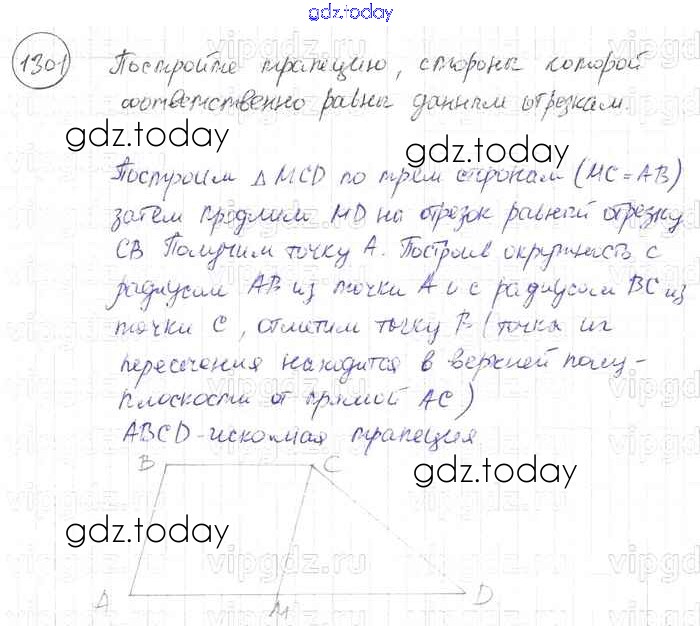 gdz.today
1301 Постройте трапецию, стороны которой
соответственно равны данным отрезкам.
gdz.today
gdz.today
Построим △ MCD по трем сторонам (MC = AB)
затем продлим MD на отрезок равный отрезку
CB Получим точку A. Построив окружность с
радиусом AB из точки A и с радиусом BC из
точки C, отметим точку B (точка их
пересечения находится в верхней полу-
плоскости от прямой AC)
ABCD - искомая трапеция
gdz.today
gdz.today
B C
gdz.today
gdz.today
A M D